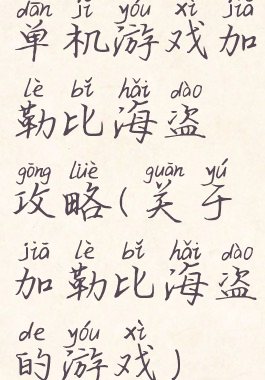 dān jī yóu xì jiā
单机游戏加
lè bǐ hǎi dào
勒比海盗
gōng lüè guān yú
攻略(关于
jiā lè bǐ hǎi dào
加勒比海盗
de yóu xì
的游戏)